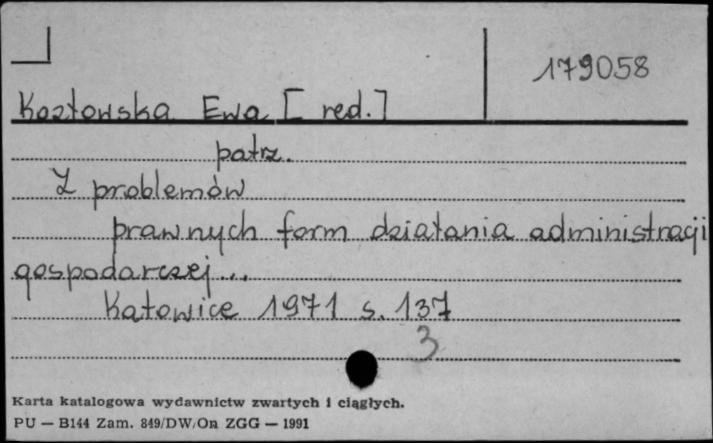 179058
Kozłowska Ewa [red.]
patrz.
Z problemów
prawnych form działania administracji
gospodarczej...
Katowice 1971 s. 137
3
Karta katalogowa wydawnictw zwartych i ciągłych.
PU — B144 Zam. 849/DW/On ZGG — 1991